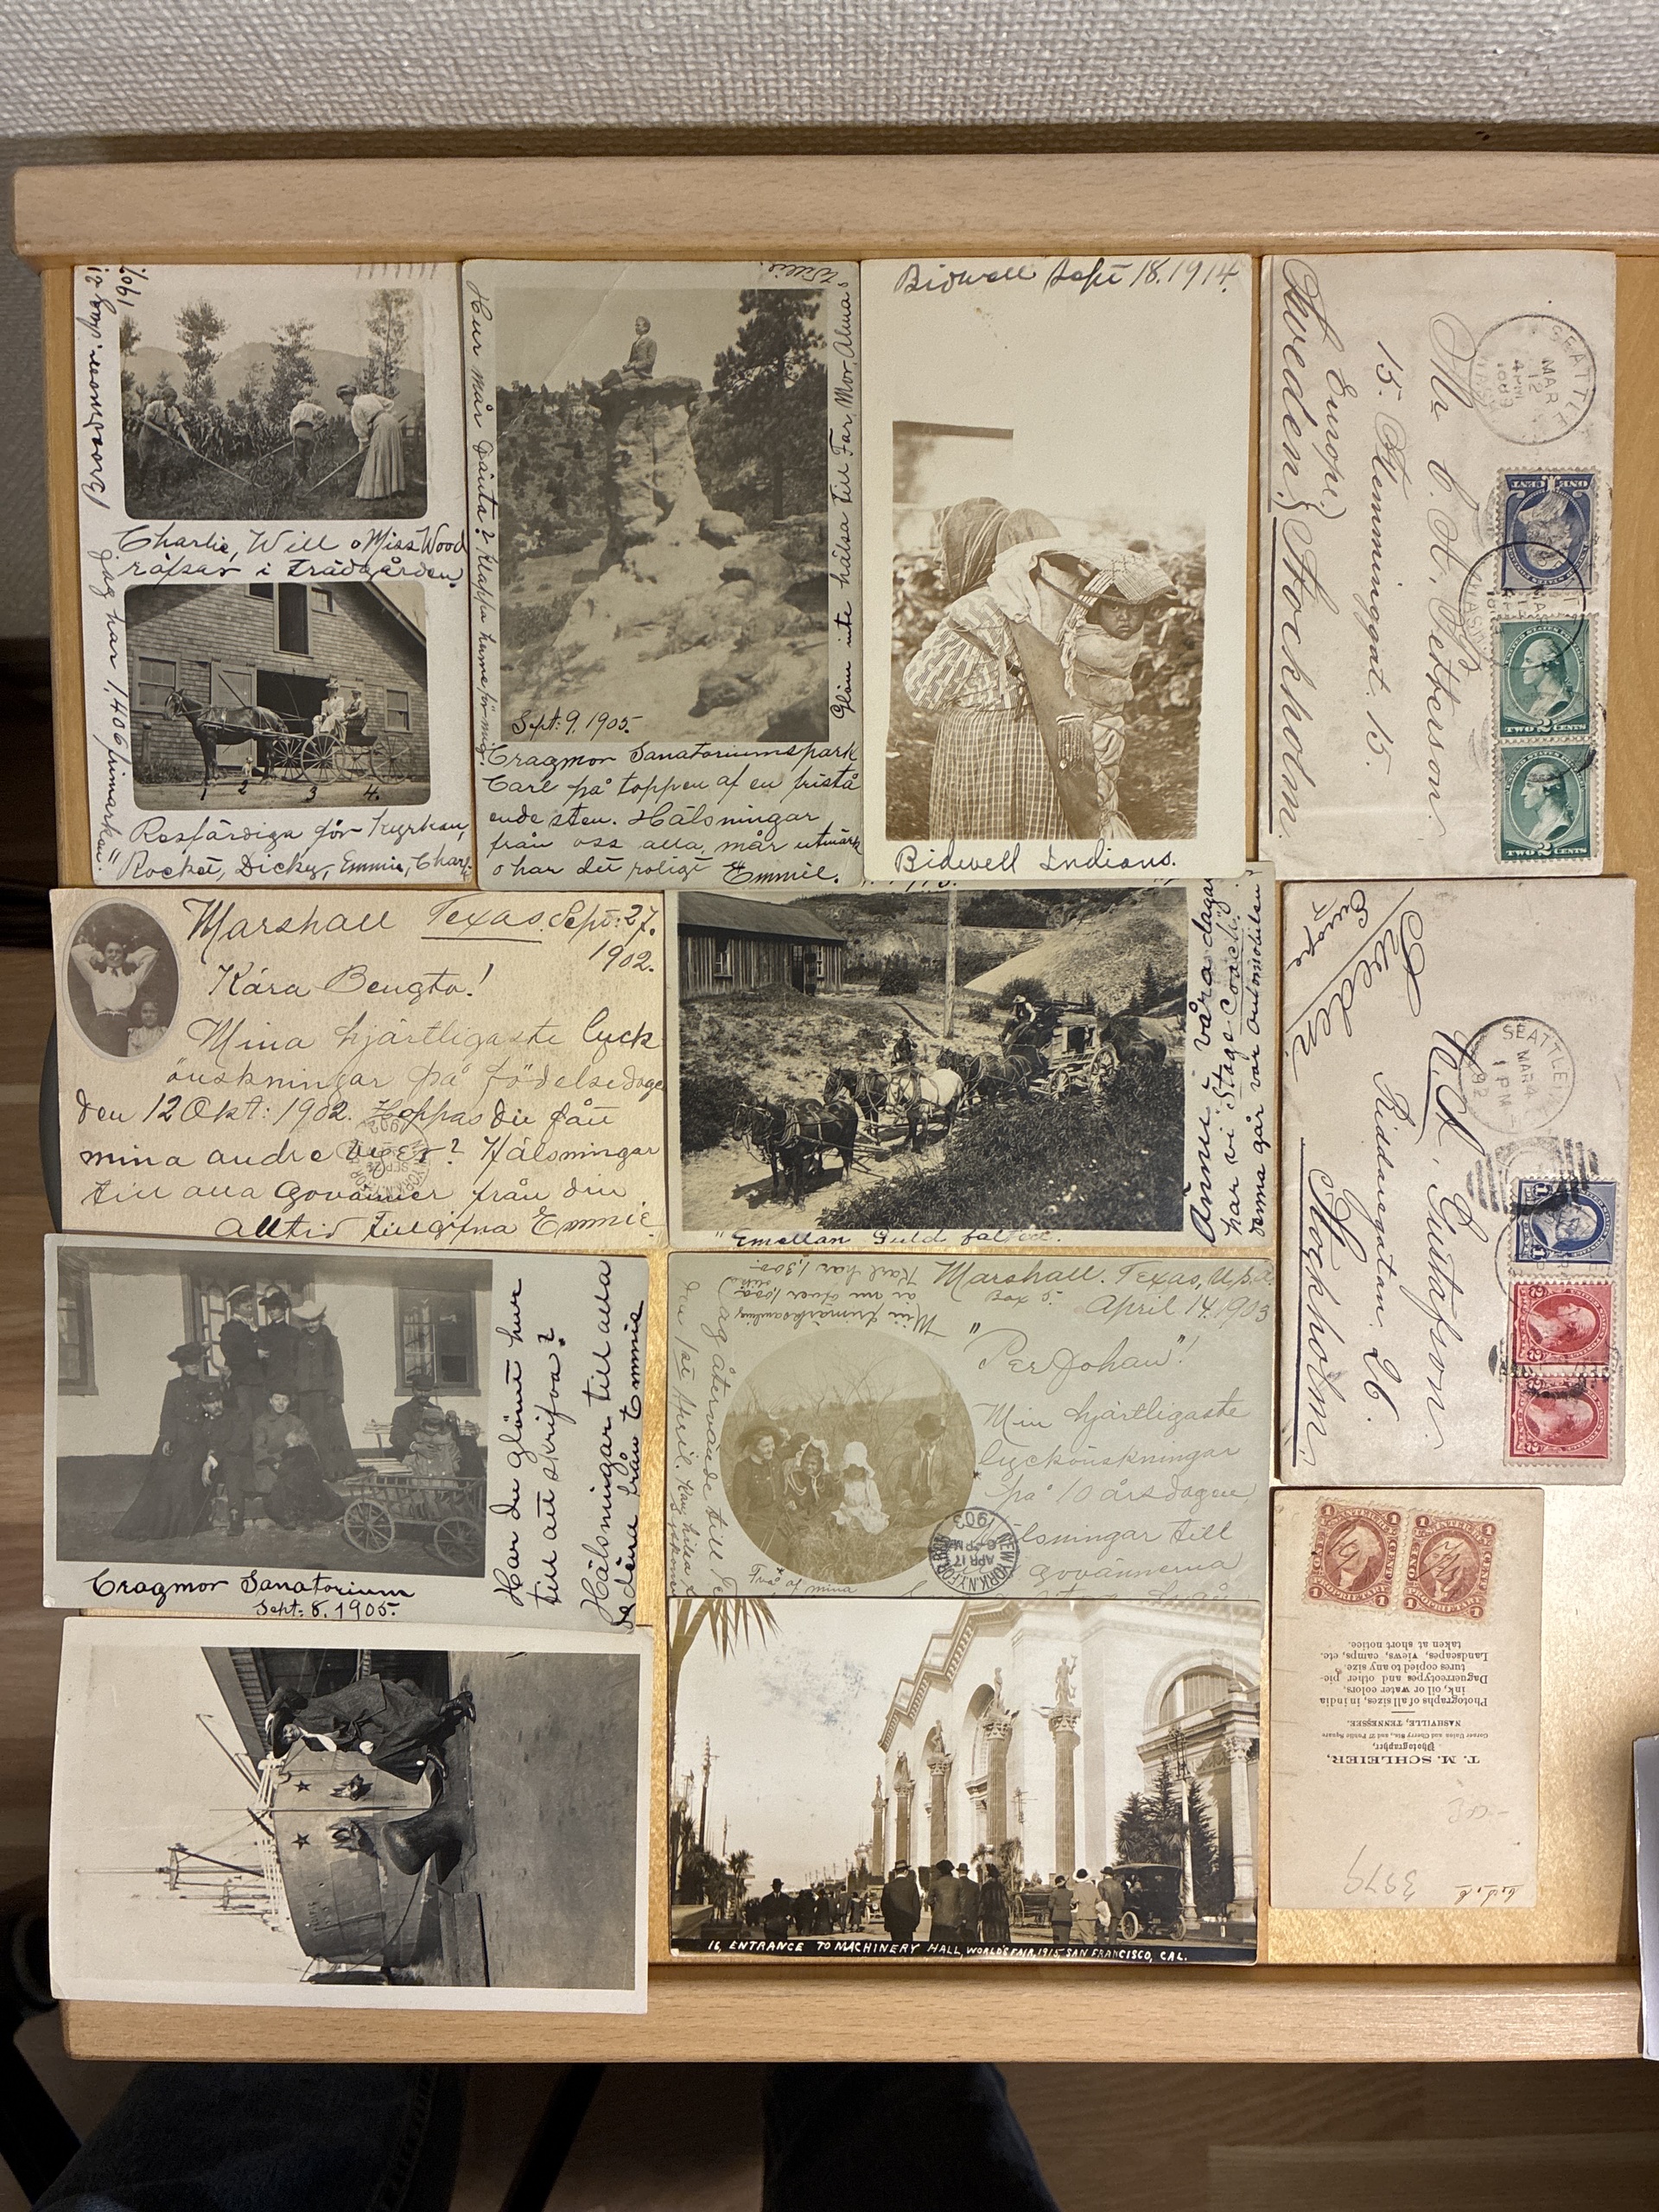 Broadmoor, Aug. 21
1907
Charlie, Will o Miss Wood
räfsar i trädgården.
Jag har 1,406 frimärken."
1 2 3 4.
Resfärdiga för Kyrkan,
Rocket, Dicky, Emmie, Charlie
Hur mår Gänta? Klappa henne för mig.
Sept: 9. 1905.
Glöm inte hälsa till Far, Mor, Alma,
Willie.
Cragmor Sanatoriumspark
Carl på toppen af en fristå
ende sten. Hälsningar
från oss alla, mår utmärkt
o har det roligt Emmie.
Bidwell Sept 18. 1914.
Bidwell Indians.
SEATTLE
MAR
12
4 PM
1889
WASH.
Mr C. A. Petterson.
15. Flemminggat. 15.
Europe)
Sweden.} Stockholm.
ONE CENT
TWO 2 CENTS
TWO 2 CENTS
Marshall Texas. Sept: 27.
1902.
Kära Bengta!
Mina hjärtligaste lyck
önskningar på födelsedagen
den 12 Okt: 1902. Hoppas du fått
mina andra vyer? Hälsningar
till alla Govänner från din
Alltid tillgifna Emmie.
"Emellan Guld fälten.
Ännu i våra dagar
har vi Stage Coach.
Denna går var automobilen
SEATTLE
MAR 4
1 PM
92
C. A. Gustafson.
Riddaregatan 26.
Stockholm.
Sweden
Europe
Cragmor Sanatorium
Sept: 8. 1905.
Har du glömt hur
till att skrifva?
Hälsningar till alla
från Emmie
Marshall. Texas, U.S.A.
Box 5
April 14. 1903
Min frimärksamling
är nu över 1,050
Karl har 1,300.
"Per Johan"!
Min hjärtligaste
lyckönskningar
på 10 årsdagen
Hälsningar till
Govännerna
Jag återvände till
den 1st April.
Två af mina
NEW YORK, N.Y.
APR 17
6-PM
1903
16, ENTRANCE TO MACHINERY HALL, WORLD'S FAIR, 1915, SAN FRANCISCO, CAL.
T. M. SCHLEIER,
Photographer,
Corner Union and Cherry Sts. and 27 Public Square
NASHVILLE, TENNESSEE.
Photographs of all sizes, in india
ink, oil or water colors,
Daguerreotypes and other pic-
tures copied to any size.
Landscapes, views, camps, etc.
taken at short notice.
3979